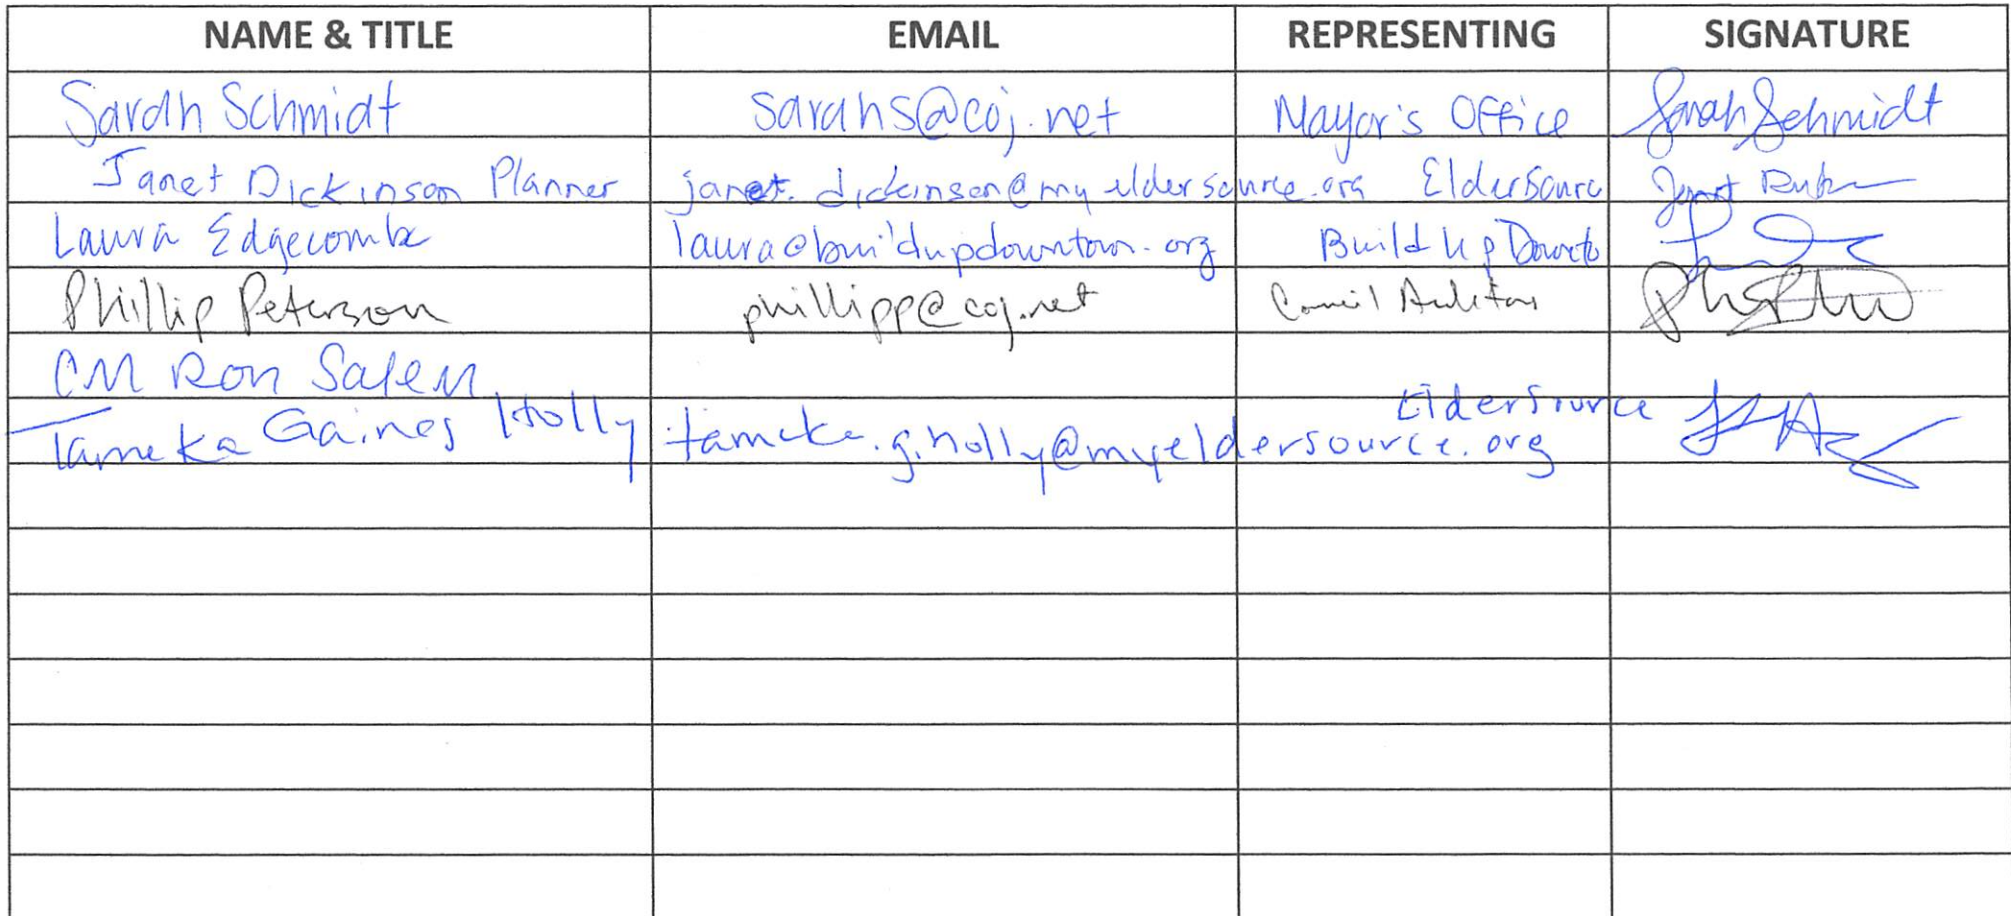 NAME & TITLE EMAIL REPRESENTING SIGNATURE
Sarah Schmidt sarahs@coj.net Mayor's Office Sarah Schmidt
Janet Dickinson Planner janet.dickinson@myeldersource.org ElderSourc
Laura Edgecombe laura@buildupdowntown.org Build Up Downto
Phillip Peterson phillipp@coj.net Council Auditors
CM Ron Salem
Tameka Gaines Holly tameka.g.holly@myeldersource.org ElderSource